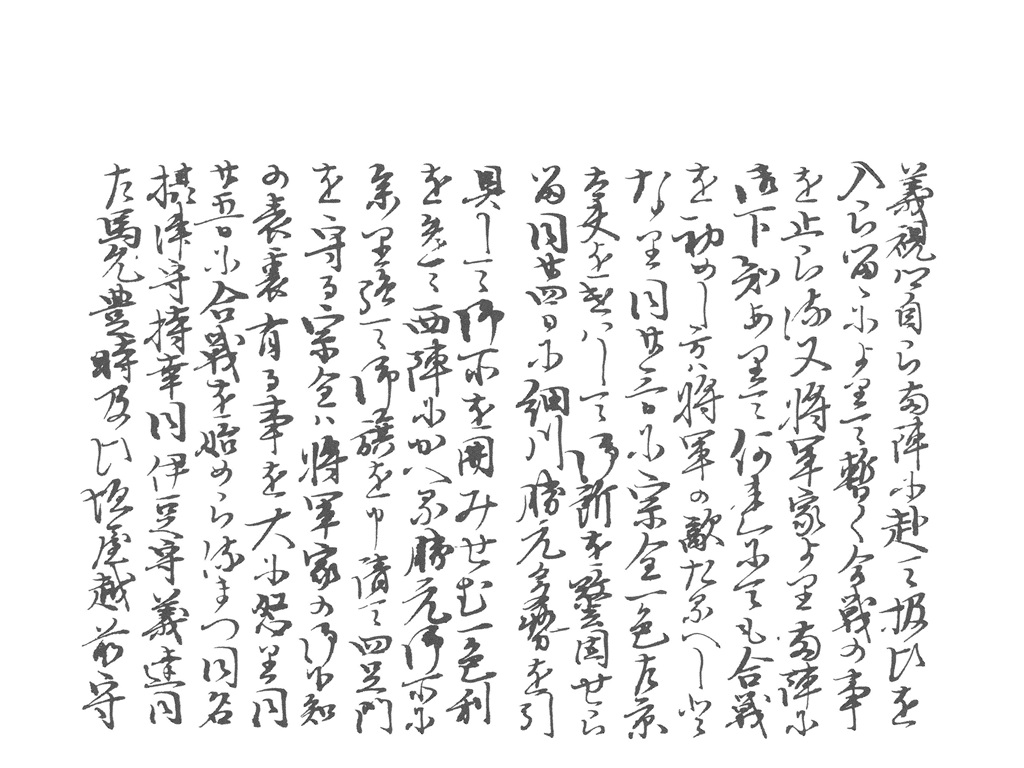 義視公自ら両陣に赴て扱ひを
入らるゝによりて暫く合戦の事
を止らる又将軍家より両陣に
御下知ありて何れにても合戦
を初めし方ハ将軍の敵たるへしと
なり同廿三日に宗全一色左京
大夫をつかハして御所を警固せら
る同廿四日に細川勝元多勢を引
具して御所を囲みせむ一色利
を失て西陣にかへる勝元御所に
参り強て御旗を申請て四足門
を守る宗全ハ将軍家の御下知
の表裏有る事を大に怒り同
廿五日に合戦を始めらるまつ同名
摂津守持幸同伊豆守義達同
左馬允豊時及ひ垣屋越前守